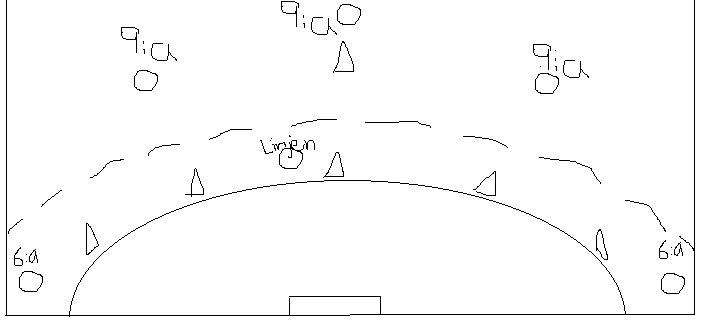 9:a
9:a
9:a
Linjen
6:a
6:a